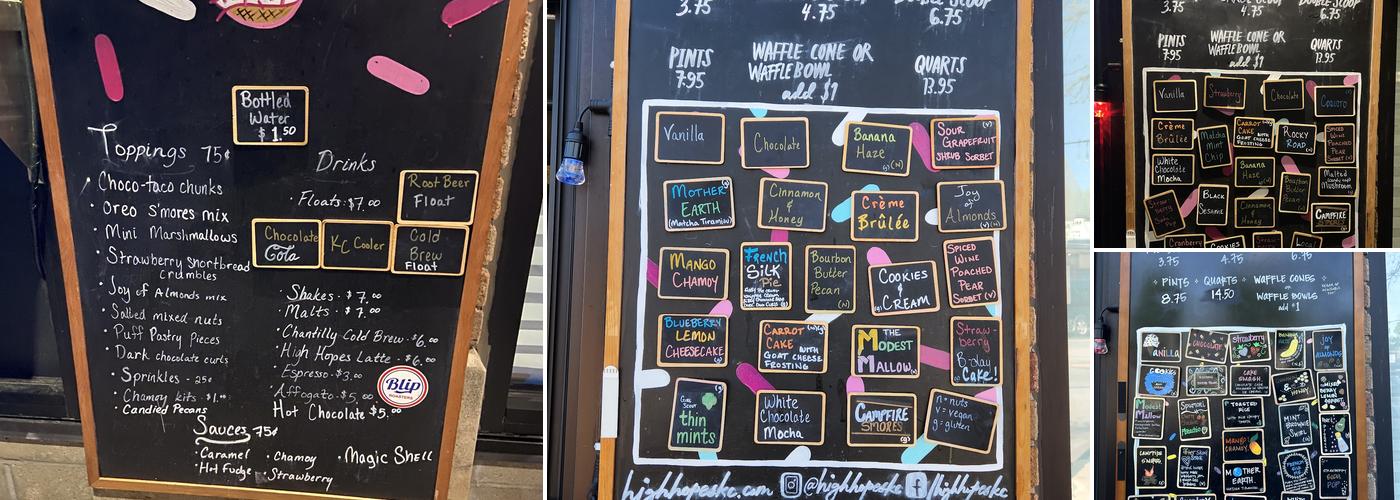 Bottled
Water
$1.50
Toppings 75¢
Choco-taco chunks
Oreo S'mores mix
Mini Marshmallows
Strawberry Shortbread
crumbles
Joy of Almonds mix
Salted mixed nuts
Puff Pastry Pieces
Dark chocolate curls
Sprinkles - 25¢
Chamoy kits - $1.00
Candied Pecans
Drinks
Floats: $7.00
Root Beer
Float
Chocolate
Cola
KC Cooler
Cold
Brew
Float
Shakes - $7.00
Malts - $7.00
Chantilly Cold Brew - $6.00
High Hopes Latte - $6.00
Espresso - $3.00
Affogato - $5.00
Hot Chocolate $5.00
Blip
ROASTERS
Sauces 75¢
Caramel
Chamoy
Magic Shell
Hot Fudge
Strawberry
3.75
4.75
6.75
PINTS
7.95
WAFFLE CONE OR
WAFFLE BOWL
add $1
QUARTS
13.95
Vanilla
Chocolate
Banana
Haze
(g)(n)
SOUR (v)
GRAPEFRUIT
SHRUB SORBET
MOTHER (g)
EARTH
(Matcha Tiramisu)
Cinnamon
&
Honey
Crème
Brûlée
Joy
of
Almonds
MANGO
CHAMOY
French
SILK
Pie
Bourbon
Butter
Pecan
(n)
COOKIES
&
CREAM
(g)
SPICED
WINE
POACHED
PEAR
SORBET (v)
BLUEBERRY
LEMON
CHEESECAKE
(g)
CARROT
CAKE WITH
GOAT CHEESE
FROSTING
THE
MODEST
MALLOW
Straw-
berry
B-day
Cake!
GIRL SCOUT
thin
mints
White
Chocolate
Mocha
CAMPFIRE
S'MORES
(g)
n = nuts
v = vegan
g = gluten
highhopeskc.com @highhopeskc /highhopeskc
3.75
4.75
6.75
PINTS
7.95
WAFFLE CONE OR
WAFFLE BOWL
add $1
QUARTS
13.95
Vanilla
Strawberry
Chocolate
Crème
Brûlée
Matcha
Mint
Chip
CARROT
CAKE WITH
GOAT CHEESE
FROSTING
ROCKY
ROAD
SPICED
WINE
POACHED
PEAR
SORBET
White
Chocolate
Mocha
Banana
Haze
Bourbon
Butter
Pecan
Malted
Mushroom
BLACK
SESAME
Cinnamon
&
Honey
CAMPFIRE
S'MORES
Cranberry
COOKIES
Local
3.75
4.75
6.75
PINTS
8.75
QUARTS
14.50
WAFFLE CONES
OR
WAFFLE BOWLS
add $1
VANILLA
CHOCOLATE
Strawberry
BANANA
JOY
OF
ALMONDS
COOKIES
CAKE
HONEY
MIXED
BERRY
LEMON
SORBET
Modest
Mallow
TOASTED
RICE
MINT
BROWNIE
MANGO
CHAMOY
CAMPFIRE
S'MORES
MOTHER
EARTH